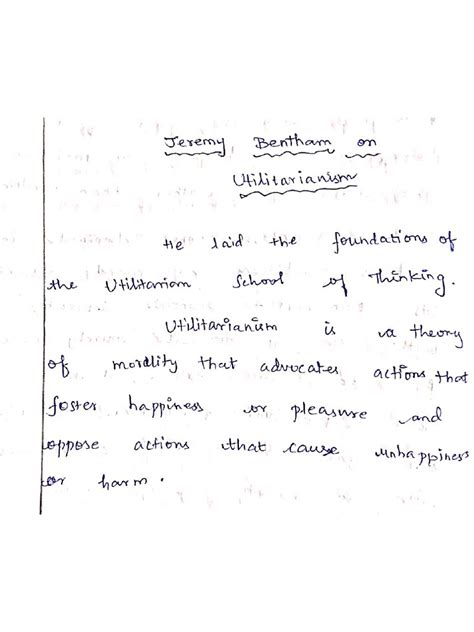 Jeremy Bentham on
Utilitarianism
He laid the foundations of
the Utilitarian School of Thinking.
Utilitarianism is a theory
of morality that advocates actions that
foster happiness or pleasure and
oppose actions that cause unhappiness
or harm.